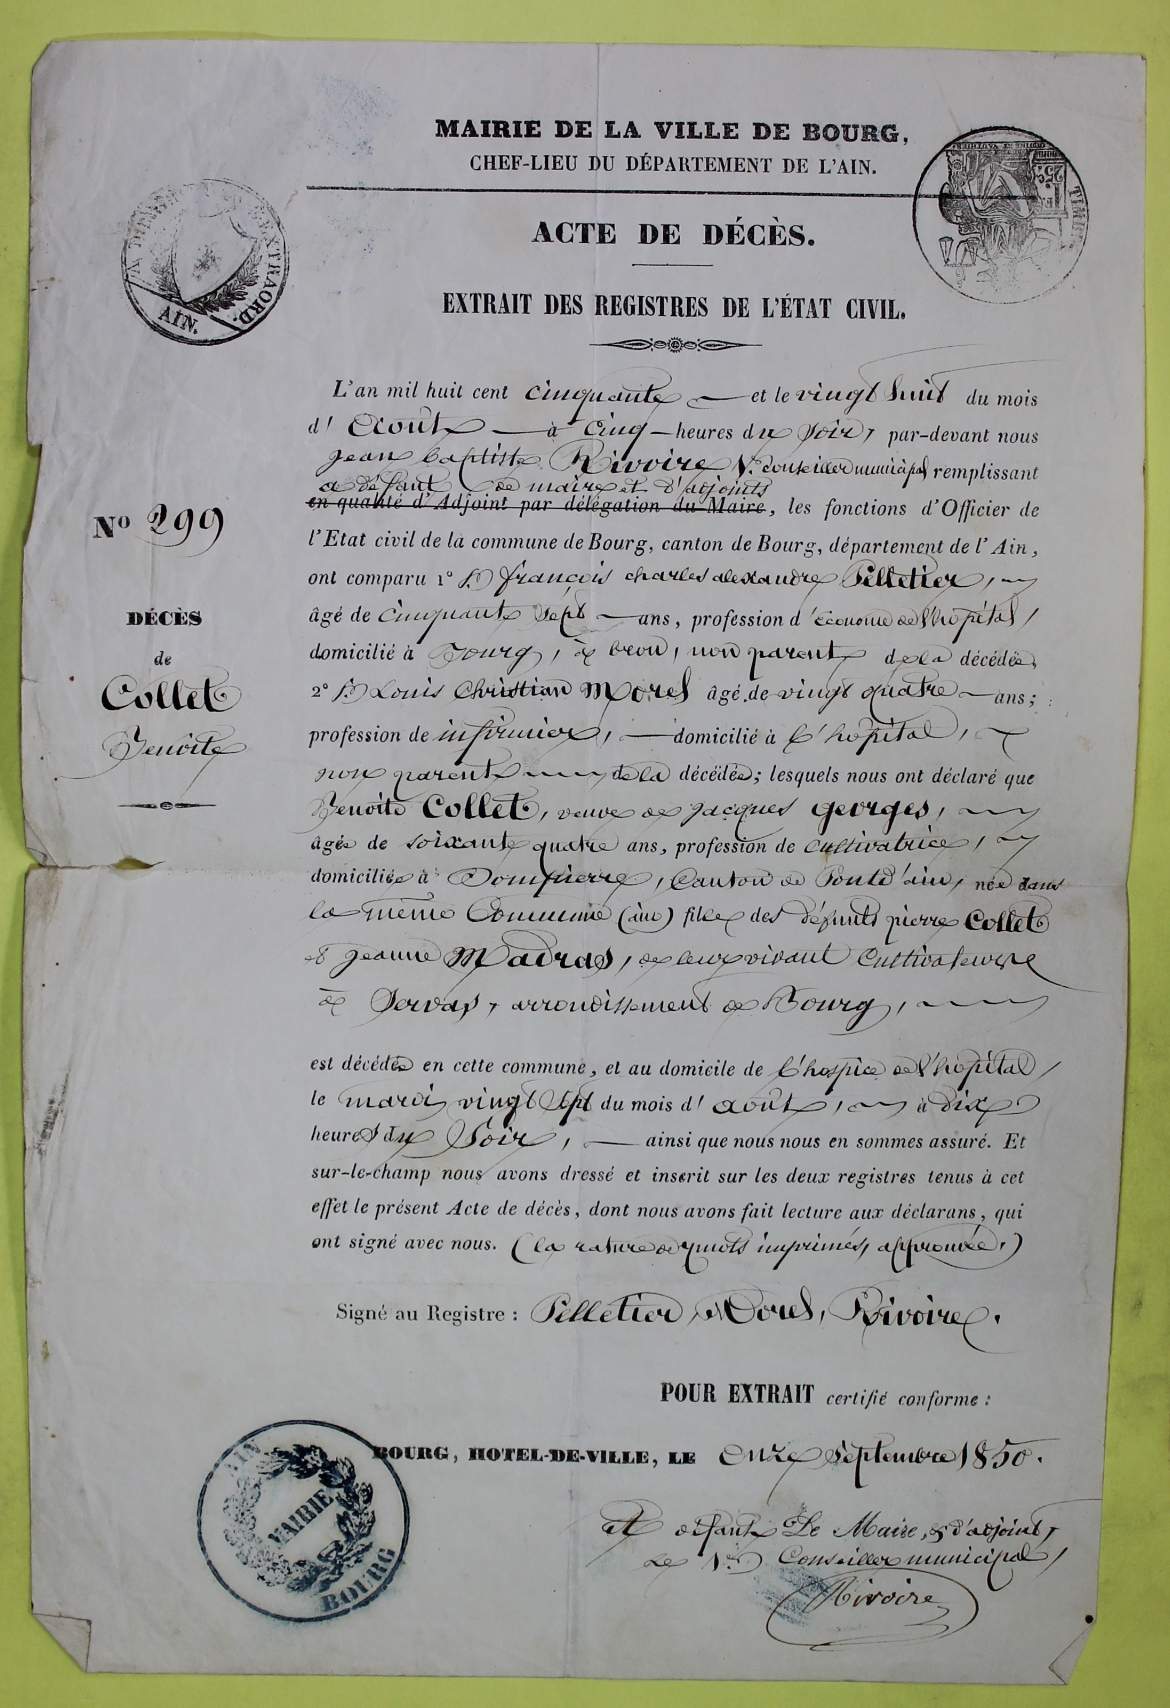 MAIRIE DE LA VILLE DE BOURG,
CHEF-LIEU DU DÉPARTEMENT DE L'AIN.
TIMBRE
1 F.
25 c.
EXTRAORD.
AIN.
ACTE DE DÉCÈS.
EXTRAIT DES REGISTRES DE L'ÉTAT CIVIL.
N° 299
DÉCÈS
de
Collet
Benoite
L'an mil huit cent cinquante et le vingt huit du mois
d'Aout à cinq heures du soir, par-devant nous
Jean Baptiste Rivoire 1er conseiller municipal remplissant
à défaut de maire et d'adjoints
en qualité d'Adjoint par délégation du Maire, les fonctions d'Officier de
l'Etat civil de la commune de Bourg, canton de Bourg, département de l'Ain,
ont comparu 1° Sr françois charles alexandre Pelletier,
âgé de cinquante sept ans, profession d'économe de l'hôpital,
domicilié à Bourg, à brou, non parent de la décédée
2° Sr Louis Christian Morel âgé de vingt quatre ans;
profession de infirmier, domicilié à l'hôpital,
non parent de la décédée; lesquels nous ont déclaré que
Benoite Collet, veuve de Jacques georges,
âgée de soixante quatre ans, profession de cultivatrice,
domiciliée à Dompierre, Canton de Pontd'ain, née dans
la même Commune (ain) fille des défunts pierre Collet
et Jeanne Madras, de leur vivant Cultivateurs
à Servas, arrondissement de Bourg,
est décédée en cette commune, et au domicile de l'hospice de l'hôpital,
le mardi vingt sept du mois d'août, à dix
heures du Soir, ainsi que nous nous en sommes assuré. Et
sur-le-champ nous avons dressé et inscrit sur les deux registres tenus à cet
effet le présent Acte de décès, dont nous avons fait lecture aux déclarans, qui
ont signé avec nous. (la rature de 7 mots imprimés, approuvée.)
Signé au Registre : Pelletier, Morel, Rivoire.
POUR EXTRAIT certifié conforme :
BOURG, HOTEL-DE-VILLE, LE Onze Septembre 1850.
AIN
MAIRIE
BOURG
à défaut Le Maire, & d'adjoint,
Le 1er Conseiller municipal,
Rivoire